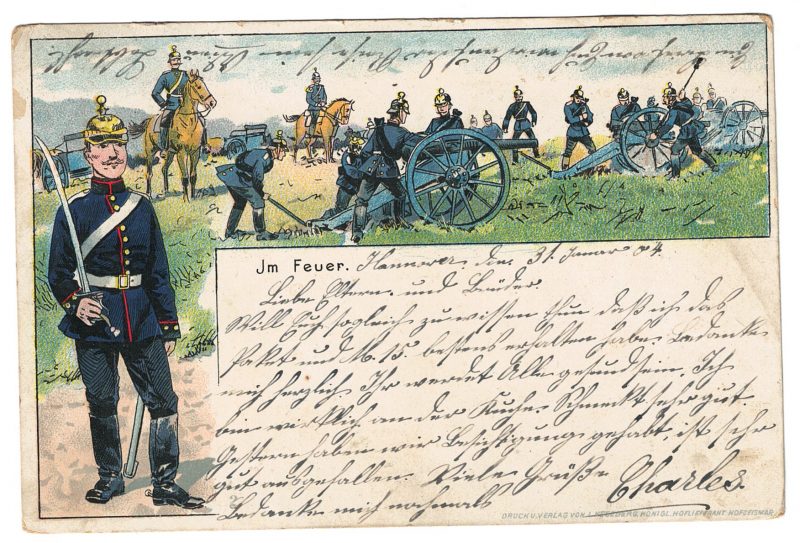 Im Feuer. Hannover, den 31. Januar 04.
Liebe Eltern und Brüder.
Will Euch sogleich zu wissen thun daß ich das
Paket und M. 15. bestens erhalten habe. Bedanke
mich herzlich. Ihr werdet Alle gesund sein. Ich
bin wirklich an der Kuche. Schmeckt sehr gut.
Gestern haben wir Besichtigung gehabt, ist sehr
gut ausgefallen. Viele Grüße
Bedanke mich nochmals Charles
DRUCK U. VERLAG VON KÖNIGL. HOFLIEFERANT HOFGEISMAR